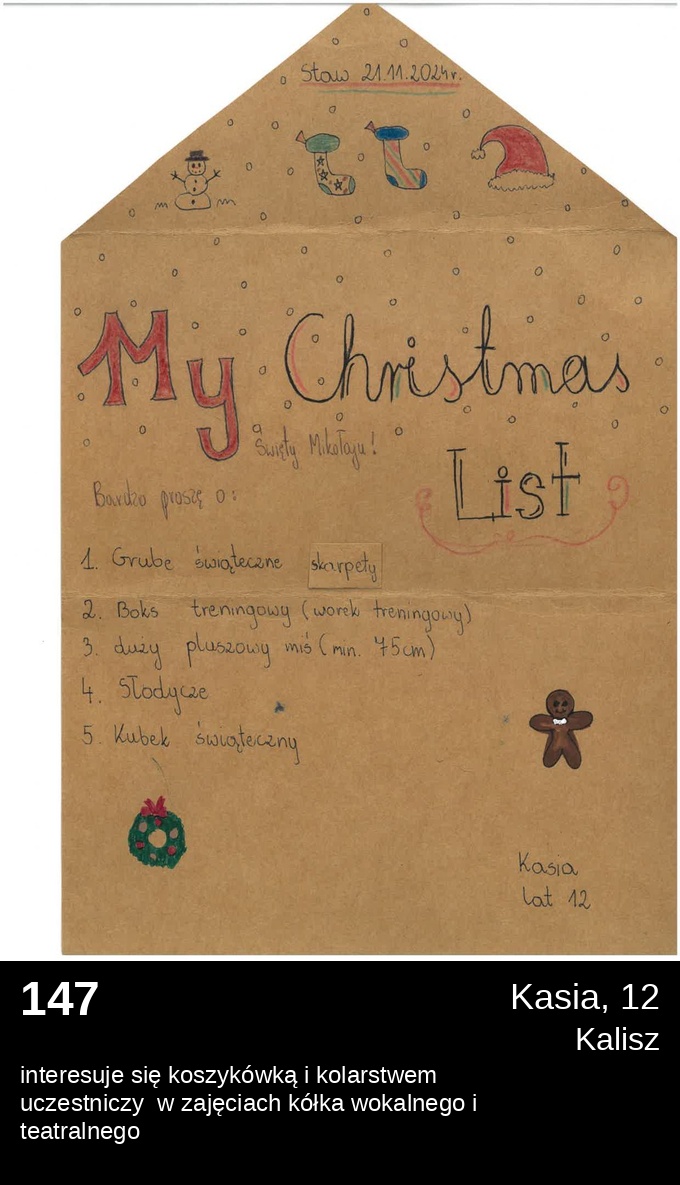 Staw 21.11.2024r.
My Christmas
List
Święty Mikołaju!
Bardzo proszę o:
1. Grube świąteczne skarpety
2. Boks treningowy (worek treningowy)
3. duży pluszowy miś (min. 75cm)
4. Słodycze
5. Kubek świąteczny
Kasia
lat 12
147
Kasia, 12
Kalisz
interesuje się koszykówką i kolarstwem
uczestniczy w zajęciach kółka wokalnego i
teatralnego